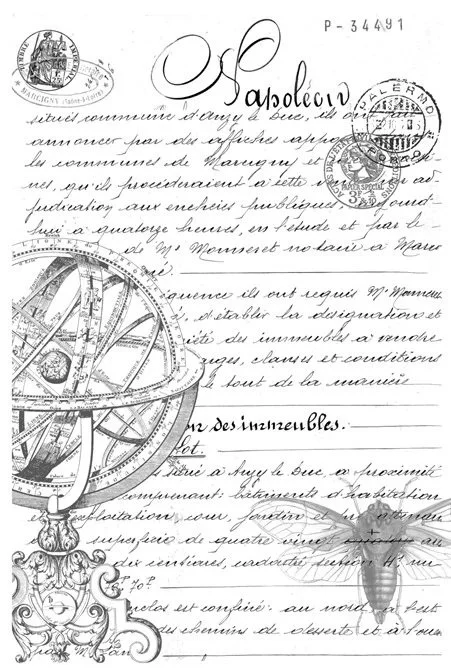 P-34491
TIMBRE IMPERIAL
MARCIGNY
Napoléon
PALERMO
PORTO
situés commune d'Anzy le Duc, ils ont fait
annoncer par des affiches
les communes de Marcigny et
nes, qu'ils procéderaient à cette
judication aux enchères publiques, aujourd-
hui à quatorze heures, en l'étude et par le
de Me notaire à Marci
équence ils ont requis Me
d'établir la désignation et
été des immeubles à vendre
arges, clauses et conditions
le tout de la manière
on des immeubles.
lot.
à Anzy le Duc, à proximité
comprenant: bâtiments d'habitation
et exploitation cour, jardin et
superficie de quatre vingt au
dix centiares, cadastré section
P 70 P
clos est confiné: au nord à l'est
des chemins de desserte et à l'oue
par M.